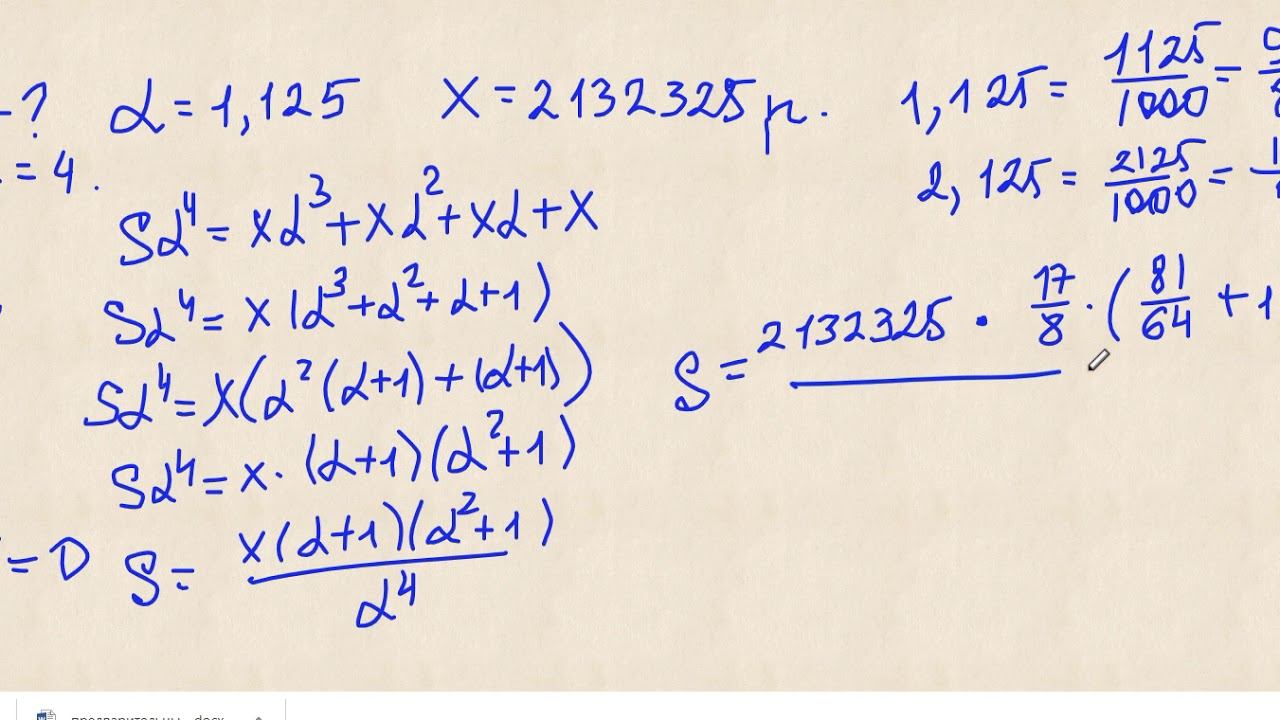 -? α = 1,125 x = 2132325 р. 1,125 = 1125/1000 =
= 4. 2,125 = 2125/1000 =
Sα⁴ = xα³ + xα² + xα + x
Sα⁴ = x(α³ + α² + α + 1)
Sα⁴ = x(α²(α+1) + (α+1))
Sα⁴ = x · (α+1)(α²+1)
= 0 S = x(α+1)(α²+1)/α⁴
S = 2132325 · 17/8 · (81/64 + 1